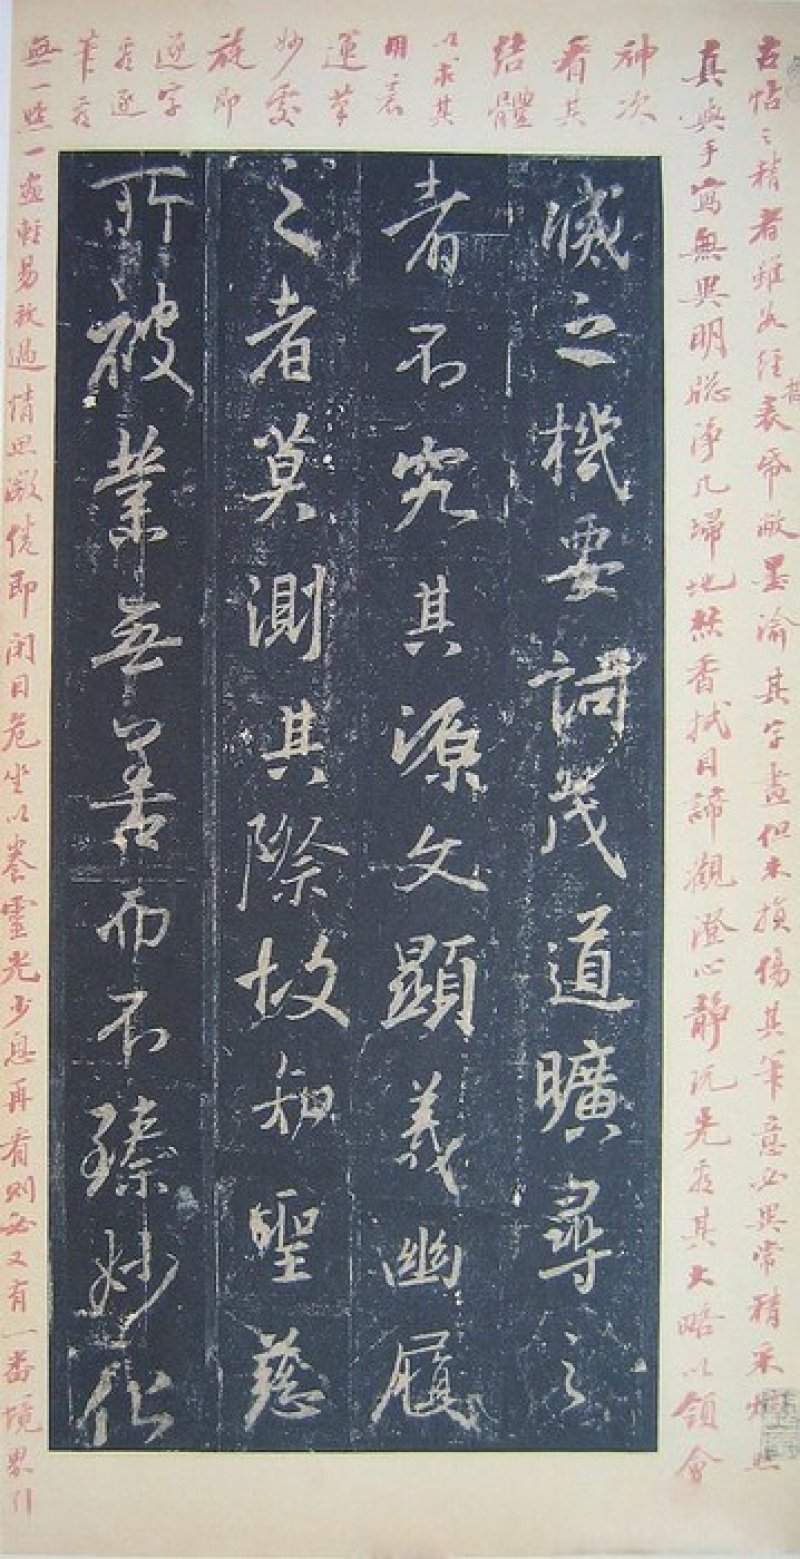 古帖之精者雖 經 帋敝墨渝其字畫但未損傷其筆意必異常精采
真與手寫無異明牕淨几埽地焚香拭目諦觀澄心靜玩先看其大略以領會
神次
看其
結體
以求其
用意
運筆
妙處
旋即
逐字
看逐
筆看
無一點一畫輕易放過情思微倦即閉目危坐以養靈光少息再看則必又有一番境界
滅之機要詞茂道曠尋之
者不究其源文顯義幽履
之者莫測其際故知聖慈
所被業無善而不臻妙化